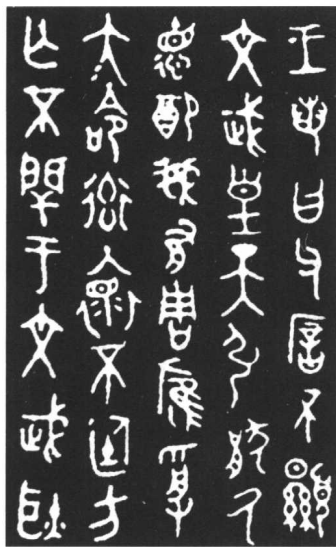 王若曰父㕓不顯
文武皇天引猒氒
悳配我有周膺受
大命衒褱不廷方
亡不閈于文武耿